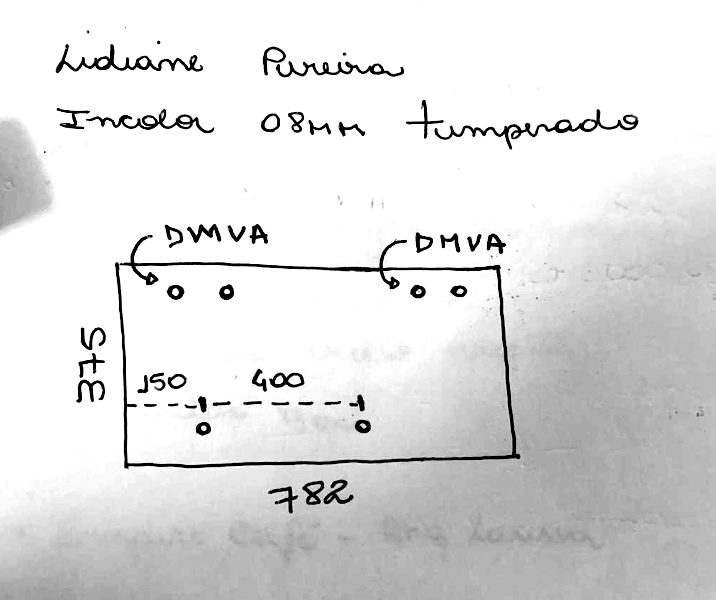 Lidiane Pereira
Incolor 08MM temperado
DMVA DMVA
375
150 400
782